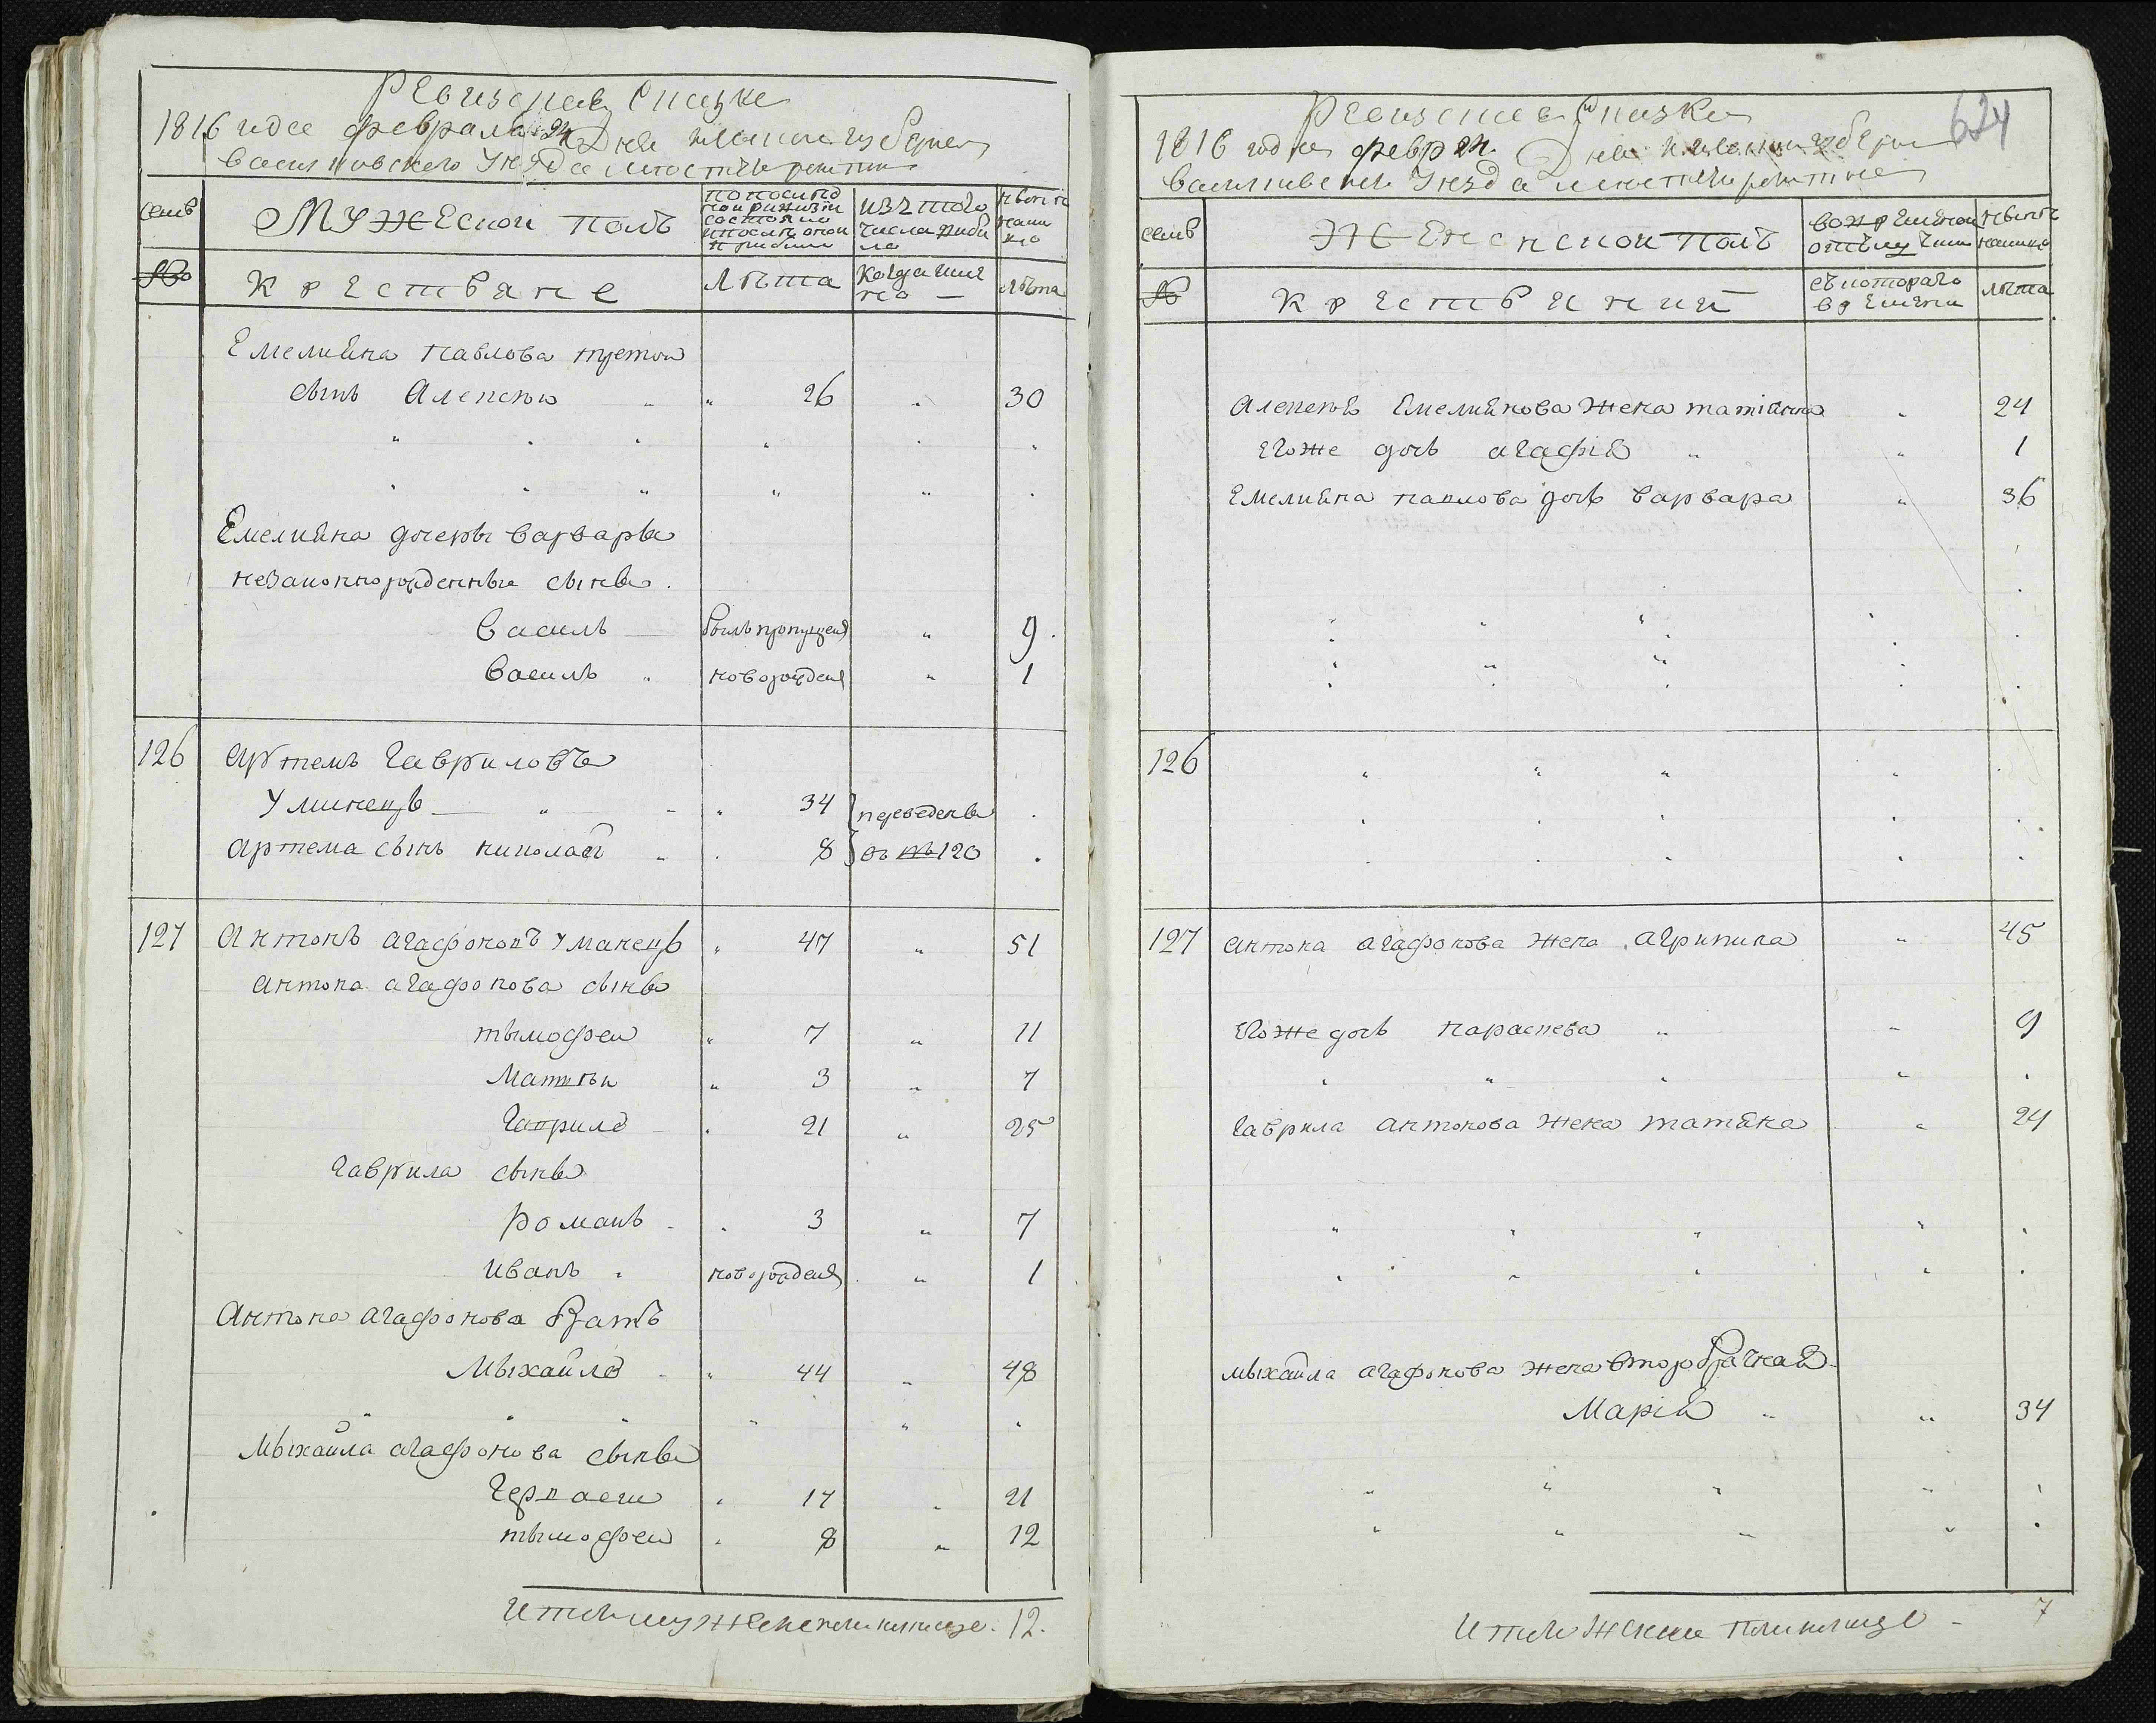 Ревизская Сказка
1816 года февраля 24 Дня губерн
васильковского Уезда местечка
семьи
Мужескои полъ
изъ того числа выбыло
ныне на лицо
№
крестьяне
Лѣта
когда именно —
лѣта
Емелияна павлова третои
сынъ Алексѣи 26 30
Емелияна дочеры варвары
незаконнорожденные сыны
Василь былъ пропущен 9
Василь новорожден 1
126 Артемъ Гавриловъ
Уманецъ 34 переведены
Артема сынъ николаи 8 въ № 120
127 Антонъ агафоновъ Уманецъ 47 51
Антона агафонова сыны
тымофеи 7 11
Матвѣи 3 7
Гаврило 21 25
Гаврила сыны
Романъ 3 7
Иванъ новорожден 1
Антона агафонова братъ
Мыхайло 44 48
Мыхайла агафонова сыны
Герасим 17 21
тымофеи 8 12
Итого мужеска полу на лицо 12.
624
Ревизская Сказка
1816 года февр 24 Дня губерн
васильковского Уезда местечка
семьи
Женскои полъ
во временнои отлучки
ныне на лицо
№
крестьяне
съ которого времени
лѣта
Алексѣя Емелиянова жена татіанна 24
Егоже дочь агафія 1
Емелияна павлова дочь варвара 36
126
127 Антона агафонова жена агрипина 45
Егоже дочь параскева 9
Гаврила антонова жена татяна 24
мыхайла агафонова жена второбрачная
Марія 34
Итого женска полу на лицо 7